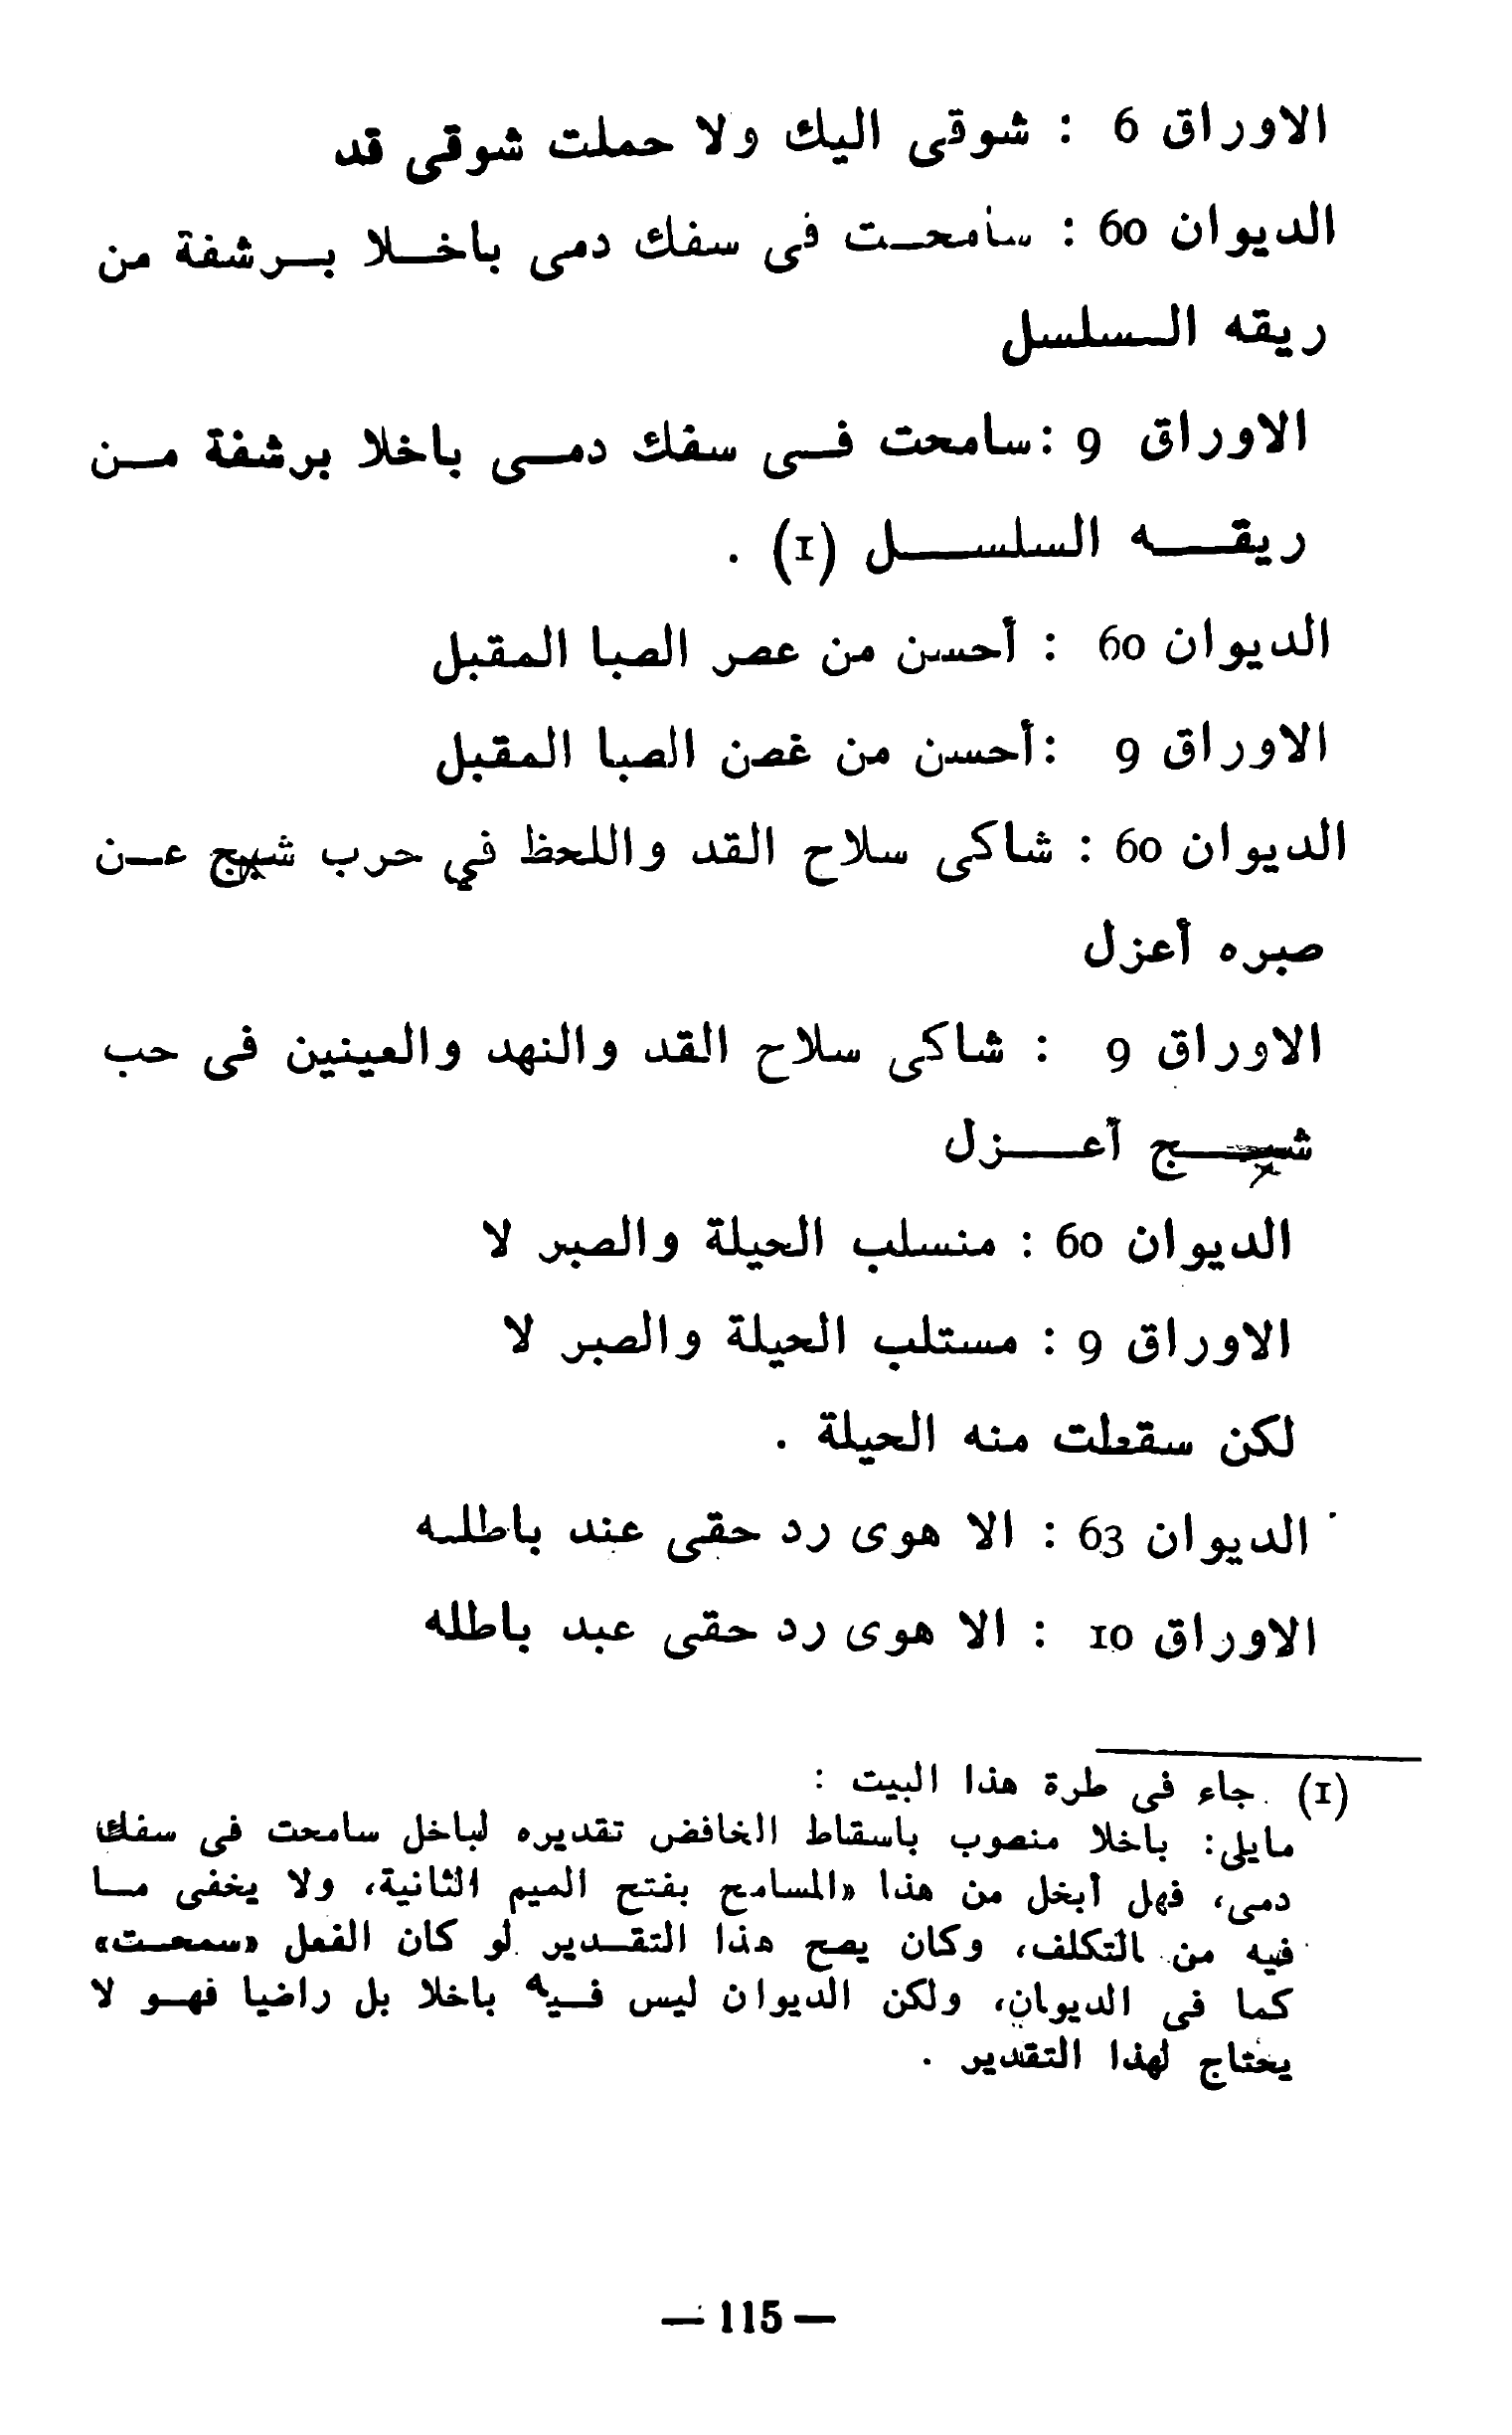 الاوراق 6 : شوقى اليك ولا حملت شوقى قد
الديوان 60 : سامحت فى سفك دمى باخلا برشفة من
ريقه السلسل
الاوراق 9 : سامحت فى سفك دمى باخلا برشفة من
ريقه السلسل (1) .
الديوان 60 : أحسن من عصر الصبا المقبل
الاوراق 9 : أحسن من غصن الصبا المقبل
الديوان 60 : شاكى سلاح القد واللحظ في حرب شج عن
صبره أعزل
الاوراق 9 : شاكى سلاح القد والنهد والعينين فى حب
شج أعزل
الديوان 60 : منسلب الحيلة والصبر لا
الاوراق 9 : مستلب الحيلة والصبر لا
لكن سقطت منه الحيلة .
الديوان 63 : الا هوى رد حقى عند باطله
الاوراق 10 : الا هوى رد حقى عبد باطله
(1) جاء فى طرة هذا البيت :
مايلى: باخلا منصوب باسقاط الخافض تقديره لباخل سامحت فى سفك
دمى، فهل أبخل من هذا «المسامح بفتح الميم الثانية، ولا يخفى ما
فيه من التكلف، وكان يصح هذا التقدير لو كان الفعل «سمحت»
كما فى الديوان، ولكن الديوان ليس فيه باخلا بل راضيا فهو لا
يحتاج لهذا التقدير .
— 115 —